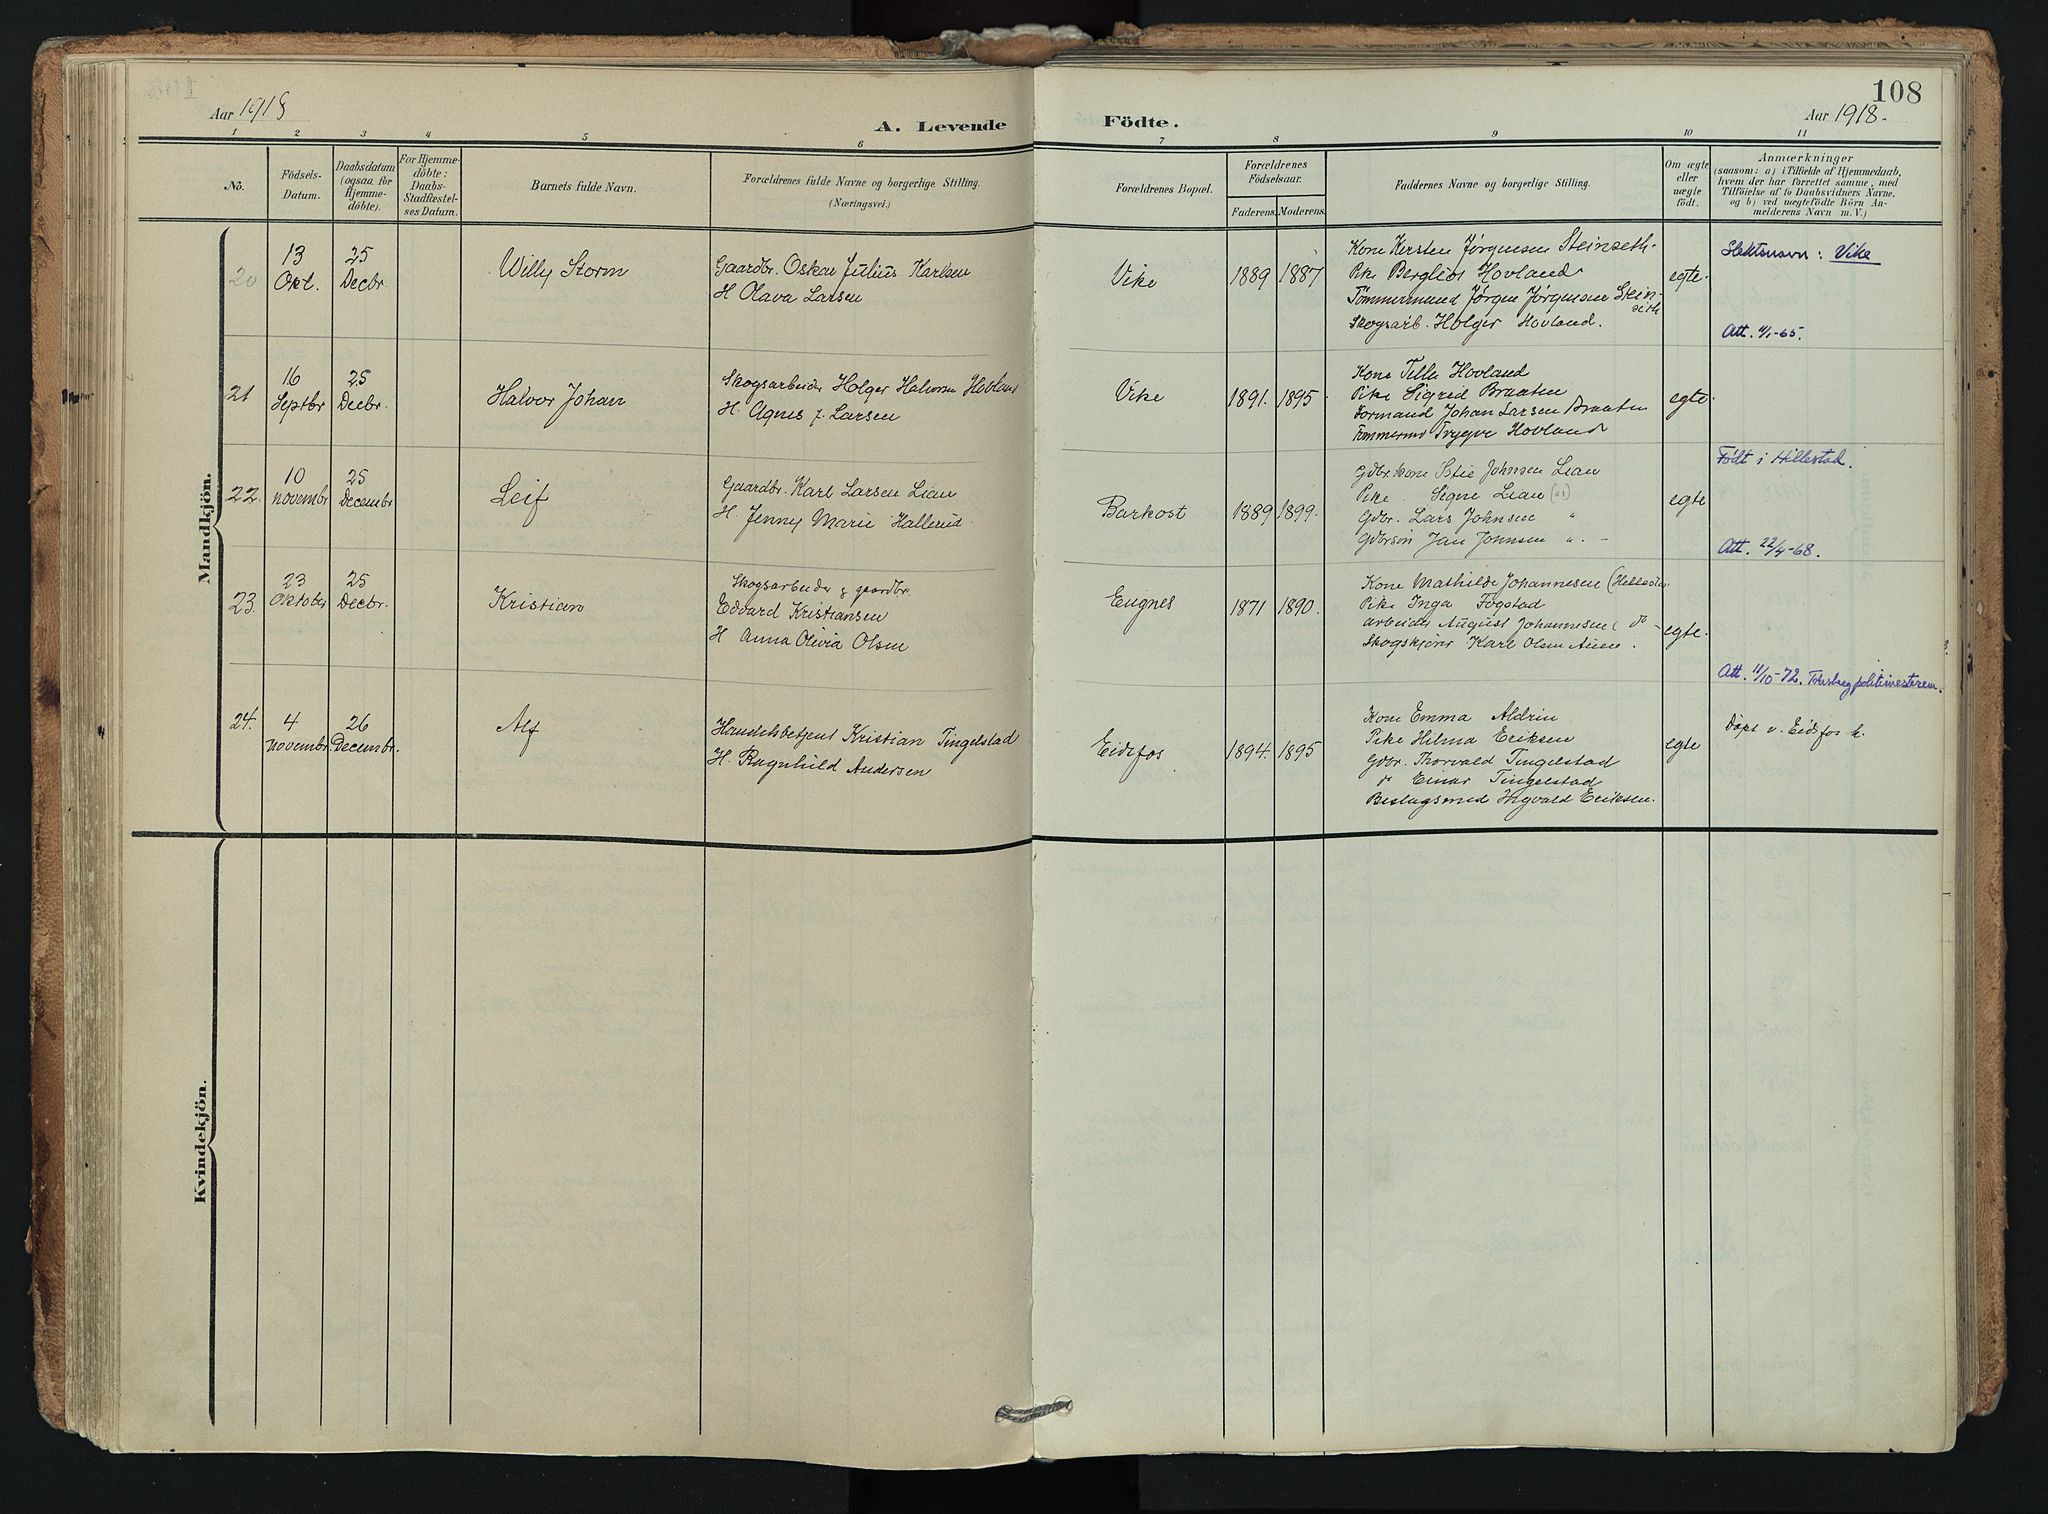 108
Aar 1918
A. Levende Födte.
Aar 1918.
1 2 3 4 5 6 7 8 9 10 11
No.
Födsels-
Datum.
Daabsdatum
(ogsaa for
Hjemme-
döbte).
For Hjemme-
döbte:
Daabs-
Stadfæstel-
ses Datum.
Barnets fulde Navn.
Forældrenes fulde Navne og borgerlige Stilling.
(Næringsvei.)
Forældrenes Bopæl.
Forældrenes
Födselsaar.
Faderens.
Moderens.
Faddernes Navne og borgerlige Stilling.
Om ægte
eller
uægte
födt.
Anmærkninger
(saasom: a) i Tilfælde af Hjemmedaab,
hvem der har forrettet samme, med
Tilföielse af to Daabsvidners Navne,
og b) ved uægtefödte Börn An-
melderens Navn m. V.)
Mandkjön.
20
13
Okt.
25
Decbr.
Willy Storm
Gaardbr. Oskar Julius Karlsen
H Olava Larsen
Vike
1889
1887
Kone Kersten Jørgensen Steinseth.
Pike Bergliot Hovland
Tømmermand Jørgen Jørgensen Stein-
seth
Skogsarb. Holger Hovland.
egte.
Slektsnavn: Vike
Att. 4/1-65.
21
16
Septbr
25
Decbr.
Halvor Johan
Skogsarbeider Holger Halvorsen Hovland
H. Agnes f. Larsen
Vike
1891.
1895
Kone Tella Hovland
Pike Sigrid Braaten
Formand Johan Larsen Braaten
Tømmermd Trygve Hovland
egte.
22.
10
novembr
25
Decembr
Leif
Gaardbr. Karl Larsen Lian
H. Jenny Marie Hallerud
Barkost
1889
1899.
Gdbr.kone Sofie Johnsen Lian
Pike Signe Lian
Gdbr. Lars Johnsen "
Gdbrsøn Jan Johnsen ".
egte
Født i Hillestad.
Att. 22/4-68.
23.
23
Oktober
25
Decbr.
Kristian
Skogsarbeider & gaardbr.
Edvard Kristiansen
H Anna Olivia Olsen
Eugnes
1871
1890.
Kone Mathilde Johannesen
Pike Inga Fogstad
arbeider August Johannesen
Skogskjører Karl Olsen Auen.
egte.
Att. 11/10-72. Tønsberg politimesterem.
24.
4
novembr
26
Decembr.
Alf
Handelsbetjent Kristian Tingelstad
H. Ragnhild Andersen
Eidsfos
1894.
1895
Kone Emma Aldrin
Pike Hilma Eriksen
Gdbr. Thorvald Tingelstad
do Einar Tingelstad
Beslagsmed Ingvald Eriksen.
egte
Døpt v. Eidsfos k.
Kvindekjön.